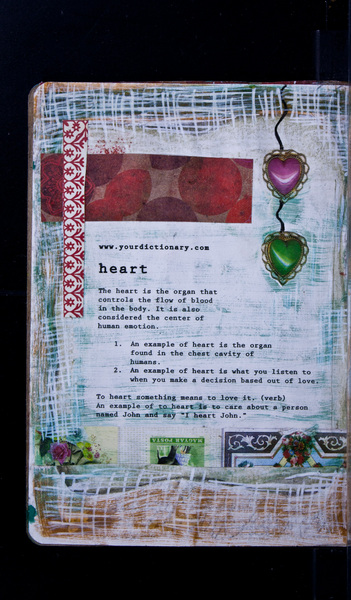 www.yourdictionary.com
heart
The heart is the organ that
controls the flow of blood
in the body. It is also
considered the center of
human emotion.
1. An example of heart is the organ
found in the chest cavity of
humans.
2. An example of heart is what you listen to
when you make a decision based out of love.
To heart something means to love it. (verb)
An example of to heart is to care about a person
named John and say "I heart John."
MAGYAR POSTA